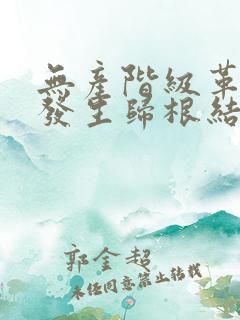 無產階級革
發生歸根結
郭金超
未經同意禁止轉載